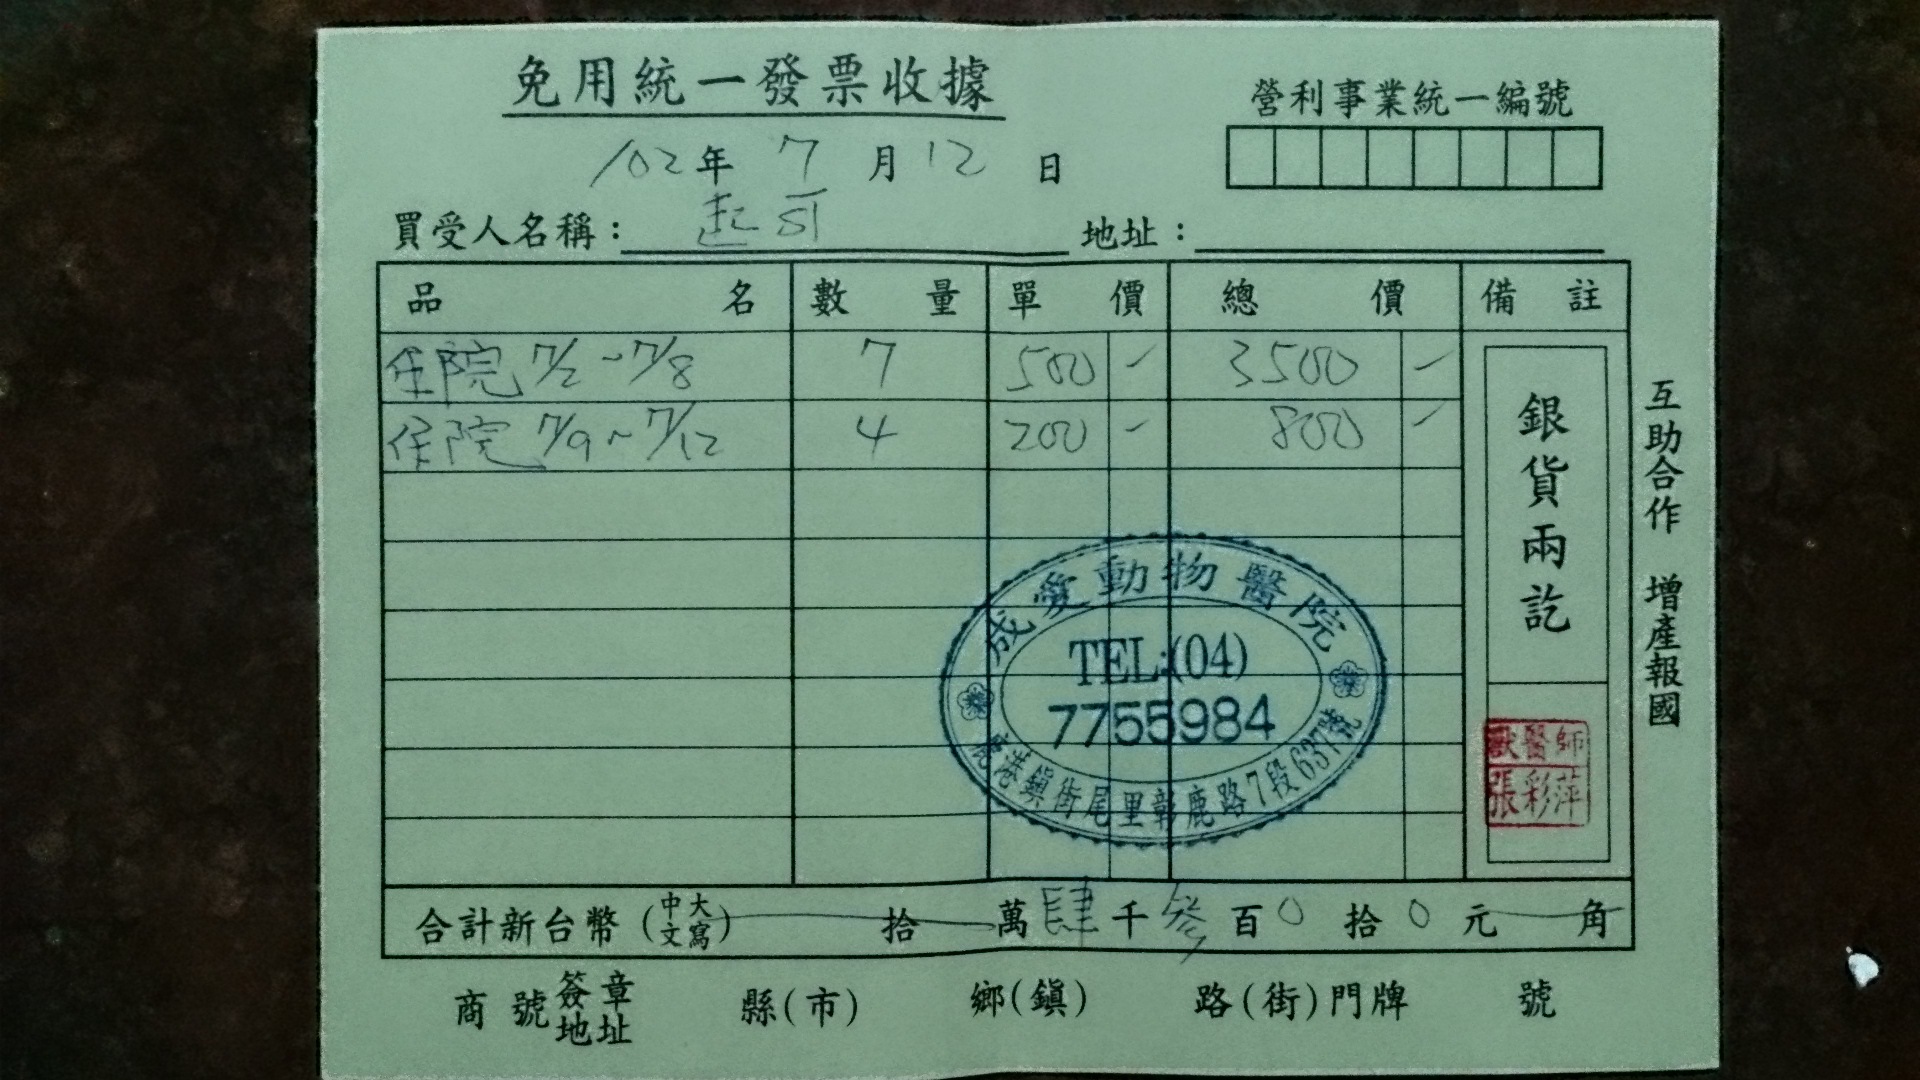 免用統一發票收據
營利事業統一編號
102年 7月12日
買受人名稱：起司 地址：
品名 數量 單價 總價 備註
住院 7/2~7/8 7 500 - 3500 -
住院 7/9~7/12 4 200 - 800 -
銀貨兩訖
互助合作 增產報國
成愛動物醫院
TEL:(04)
7755984
鹿港鎮街尾里彰鹿路7段637號
獸醫師
張彩萍
合計新台幣(中文大寫) 拾 萬肆千參百0拾0元 角
商號簽章地址 縣(市) 鄉(鎮) 路(街)門牌 號